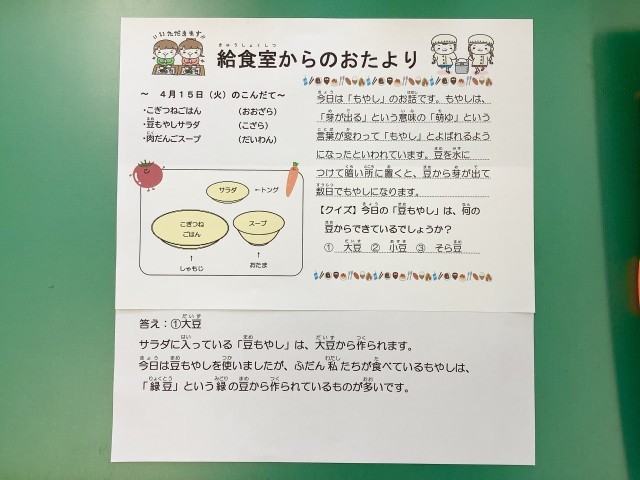 いただきます!!
きゅうしょくしつ
給食室からのおたより
～ 4月15日（火）のこんだて～
・こぎつねごはん （おおざら）
・豆もやしサラダ （こざら）
・肉だんごスープ （だいわん）
サラダ
←トング
こぎつね
ごはん
スープ
↑
しゃもじ
↑
おたま
今日は「もやし」のお話です。もやしは、
「芽が出る」という意味の「萌ゆ」という
言葉が変わって「もやし」とよばれるよう
になったといわれています。豆を水に
つけて暗い所に置くと、豆から芽が出て
数日でもやしになります。
【クイズ】今日の「豆もやし」は、何の
豆からできているでしょうか？
① 大豆 ② 小豆 ③ そら豆
答え：①大豆
サラダに入っている「豆もやし」は、大豆から作られます。
今日は豆もやしを使いましたが、ふだん私たちが食べているもやしは、
「緑豆」という緑の豆から作られているものが多いです。